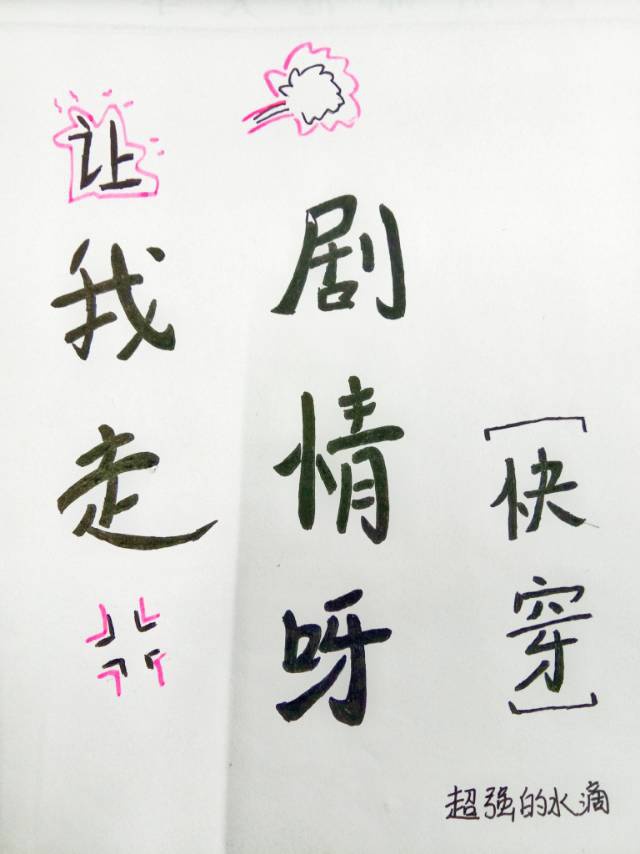 让我走
剧情呀
[快穿]
超强的水滴